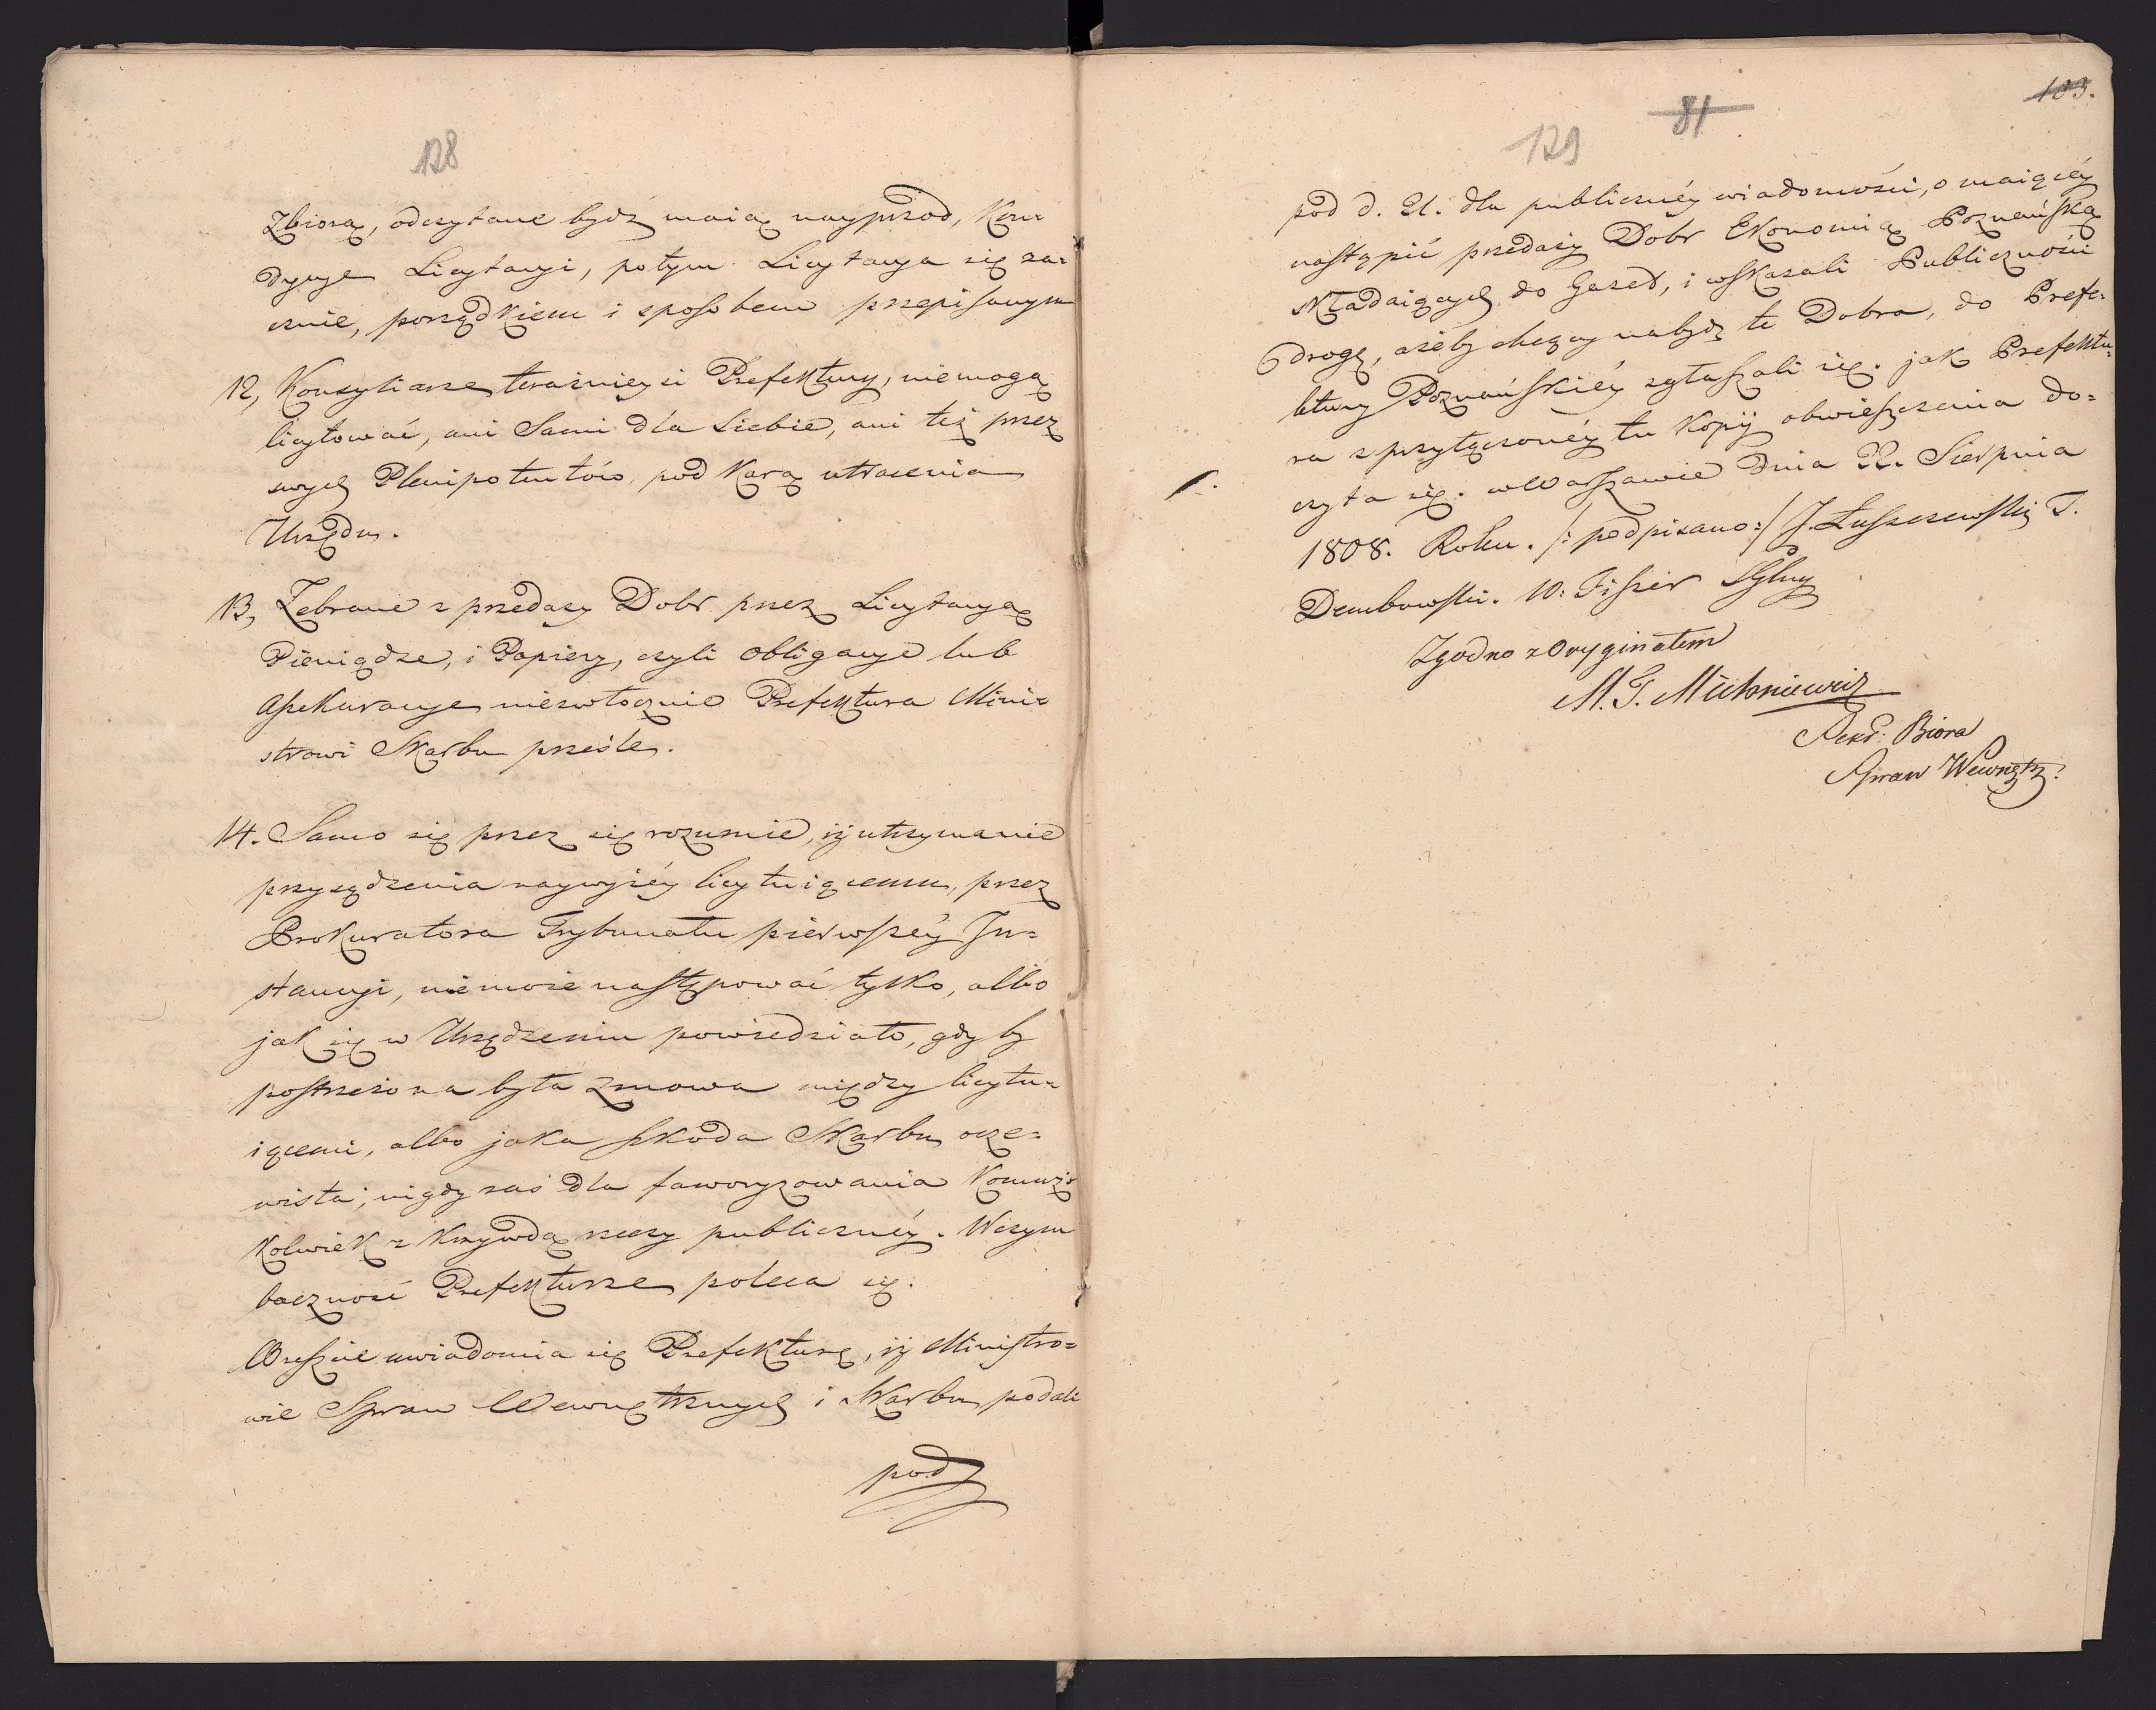 128
Zbiorą, odczytane bydź maią nayprzod, Kon=
dycye Licytacyi, potym Licytacya się za=
cznie, porządkiem i sposobem przepisanym
12, Konsyliarze teraźnieysi Prefektury, niemogą
licytować, ani Sami dla Siebie, ani też przez
swych Plenipotentów, pod karą utracenia
Urzędu.
13, Zebrane z przedaży Dobr przez Licytacyą
Pieniądze, i Papiery, czyli Obligacye lub
Assekuracye niezwłocznie Prefektura Mini=
strowi Skarbu prześle.
14. Samo się przez się rozumie, iż utrzymanie
przysądzenia naywyżéy licytuiącemu, przez
Prokuratora Trybunału pierwszéy In=
stancyi, niemoże następować tylko, albo
jak się w Urządzeniu powiedziało, gdy by
postrzeżona była zmowa między licytu=
iącemi, albo jaka szkoda Skarbu ocze=
wista; nigdy zaś dla faworyzowania komuż=
kolwiek z krzywdą rzeczy publicznéy. W czym
baczność Prefekturze poleca się.
Wreszcie uwiadomia się Prefekturę, iż Ministro=
wie Spraw Wewnętrznych i Skarbu podali
pod
103.
81
129
pod d. 21. dla publicznéy wiadomości, o maiącéy
nastąpić przedaży Dobr Ekonomią Poznańską
składaiących do Gazed, i wskazali Publiczności
drogę, ażeby chcący nabydz te Dobra, do Prefe=
ktury Poznańskiéy zgłaszali się. jak Prefektu=
ra z przyłączonéy tu kopij obwieszczenia do=
czyta się. w Warszawie dnia 22. Sierpnia
1808. Roku. /: podpisano :/ J. Łuszczewski T.
Dembowski. W: Fiszer SGlny
Zgodno z Oryginałem
M. G. Michniewicz
Sekr: Biora
Spraw Wewnętrz: